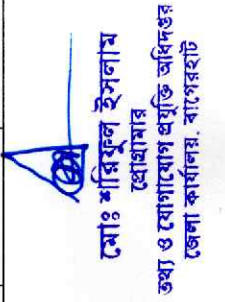 মোঃ শরিফুল ইসলাম
প্রোগ্রামার
তথ্য ও যোগাযোগ প্রযুক্তি অধিদপ্তর
জেলা কার্যালয়, বাগেরহাট